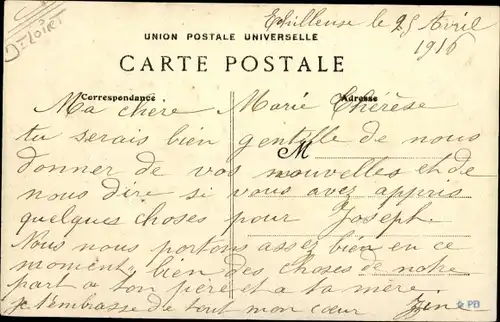 Echilleuse le 25 Avril
1916
Dt Loiret
UNION POSTALE UNIVERSELLE
CARTE POSTALE
Correspondance
Adresse
Ma chère Marie Thérèse
tu serais bien gentille de nous
M
donner de vos nouvelles et de
nous dire si vous avez appris
quelques choses pour Joseph.
Nous nous portons assez bien en ce
moment, bien des choses de notre
part a ton père et a ta mère.
je t'embrasse de tout mon cœur
PB